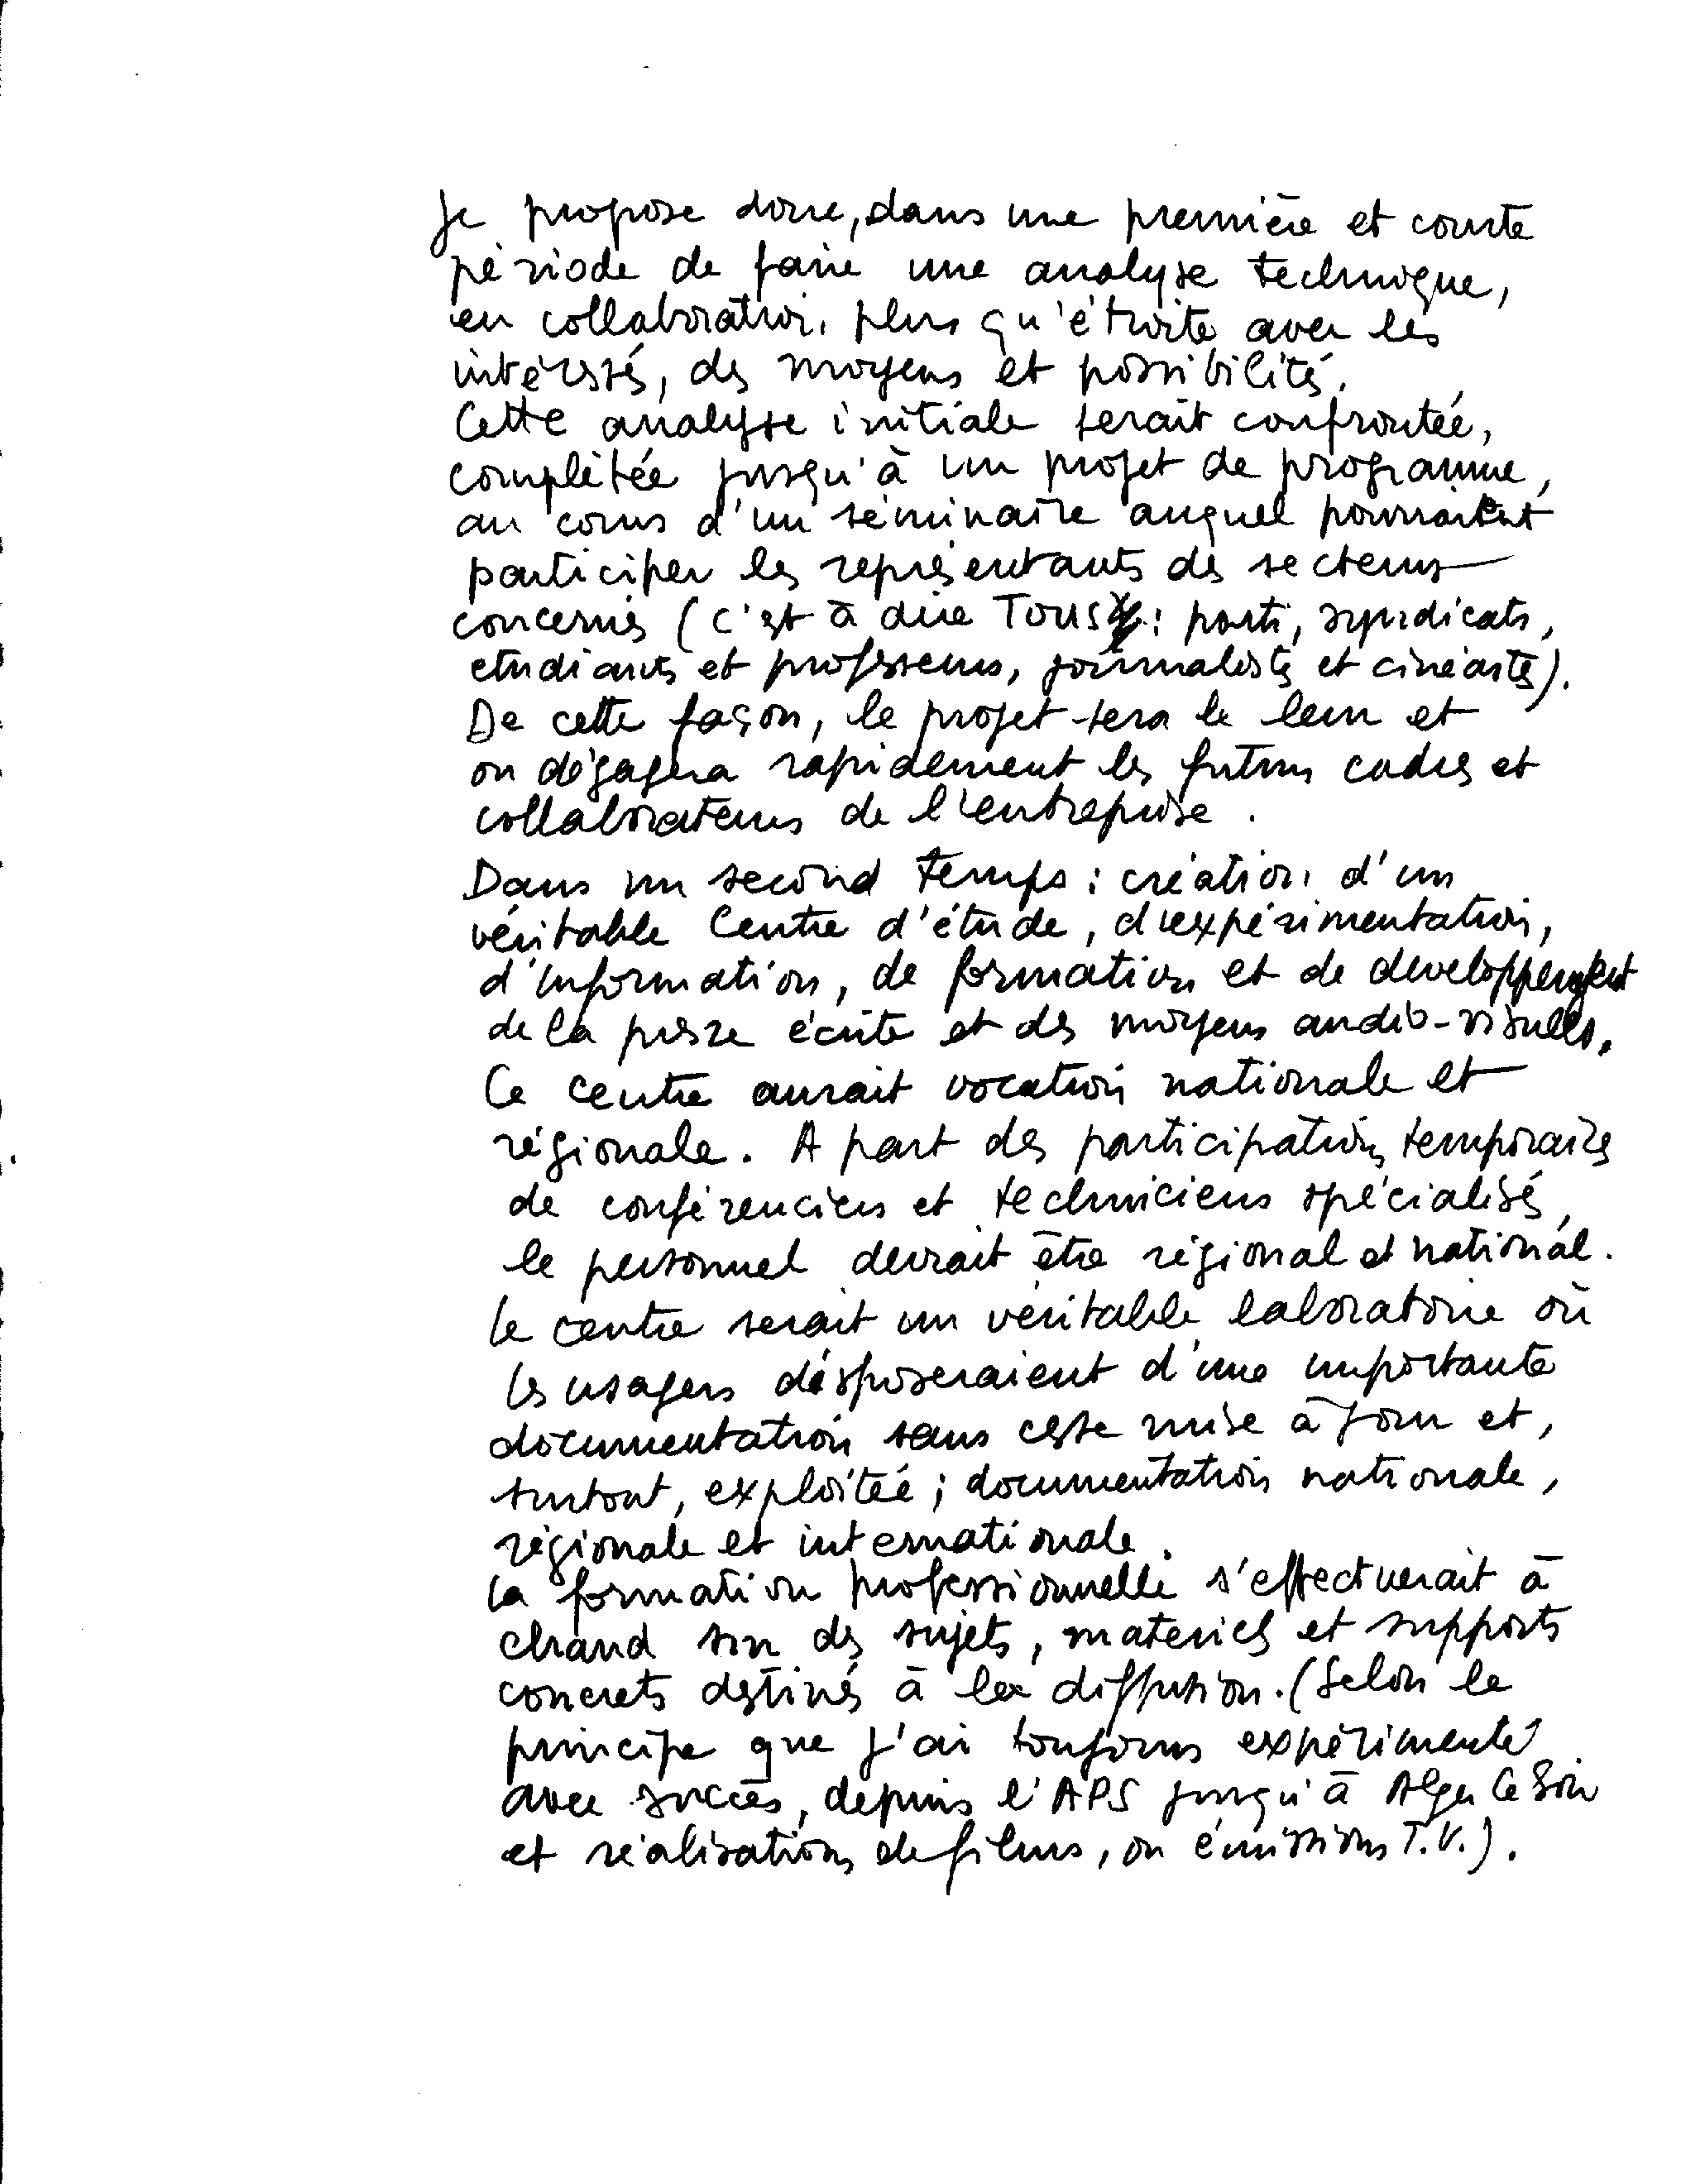 Je propose donc, dans une première et courte
période de faire une analyse technique,
en collaboration plus qu'étroite avec les
intéressés, des moyens et possibilités.
Cette analyse initiale serait confrontée,
complétée jusqu'à un projet de programme,
au cours d'un séminaire auquel pourraient
participer les représentants des secteurs
concernés (c'est à dire TOUS : parti, syndicats,
etudiants et professeurs, journalistes et cinéastes).
De cette façon, le projet sera le leur et
on dégagera rapidement les futurs cadres et
collaborateurs de l'entreprise.
Dans un second temps : création d'un
véritable Centre d'étude, d'expérimentation,
d'information, de formation et de developpement
de la presse écrite et des moyens audio-visuels.
Ce centre aurait vocation nationale et
régionale. A part des participations temporaires
de conférenciers et techniciens spécialisés,
le personnel devrait être régional et national.
Le centre serait un véritable laboratoire où
les usagers disposeraient d'une importante
documentation sans cesse mise à jour et,
surtout, exploitée ; documentation nationale,
régionale et internationale.
La formation professionnelle s'effectuerait à
chaud sur des sujets, materiels et supports
concrets destinés à la diffusion. (Selon le
principe que j'ai toujours expérimenté
avec succès, depuis l'APS jusqu'à Alger Ce Soir
et réalisations de films, ou émissions T.V.).